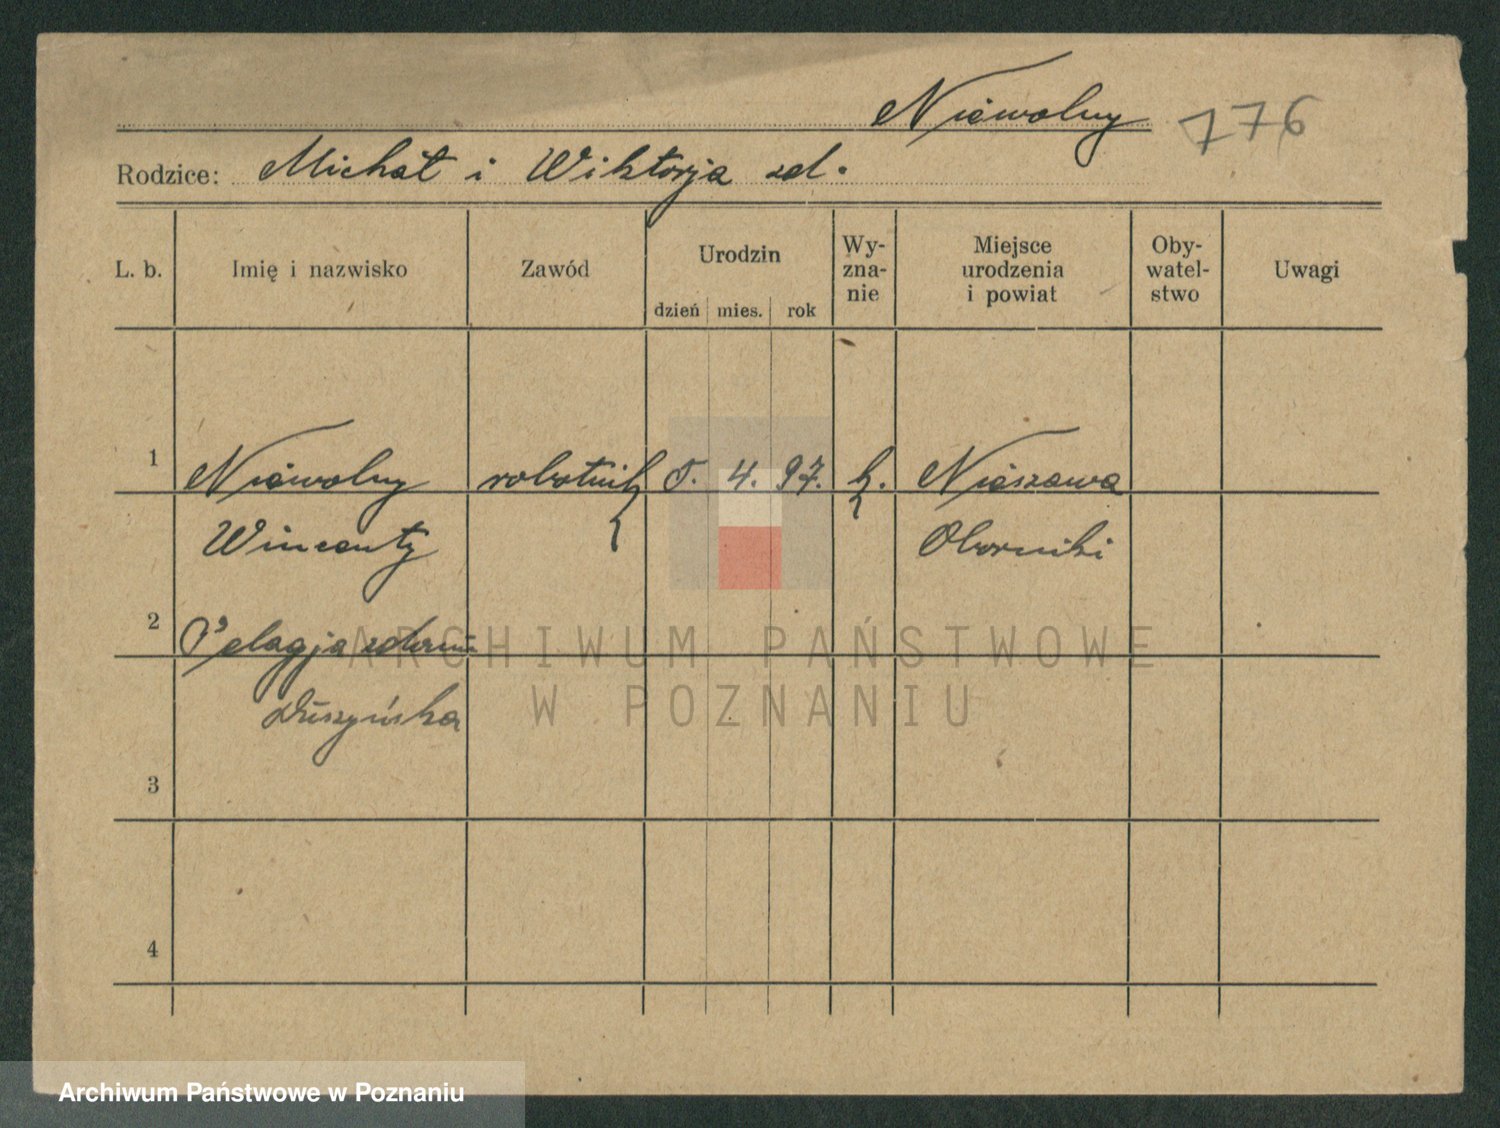 Niewolny 176
Rodzice: Michał i Wiktorja zd.
L. b. Imię i nazwisko Zawód Urodzin Wy-zna-nie Miejsce urodzenia i powiat Oby-watel-stwo Uwagi
dzień mies. rok
1 Niewolny robotnik 5. 4. 97. k. Nieszawa
Wincenty Oborniki
2 Pelagja
Duszyńska
3
4
ARCHIWUM PAŃSTWOWE
W POZNANIU
Archiwum Państwowe w Poznaniu